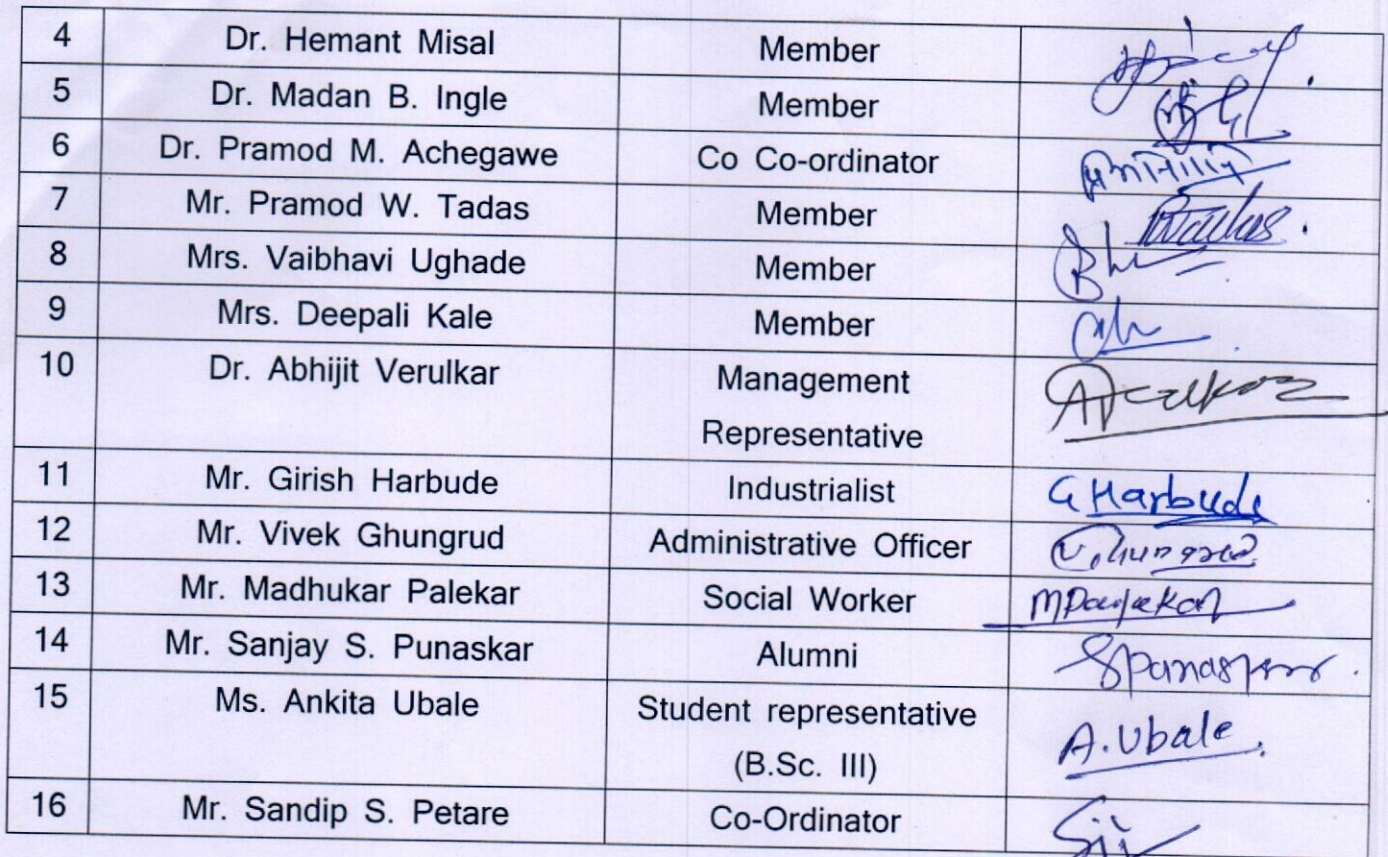 4 Dr. Hemant Misal Member
5 Dr. Madan B. Ingle Member
6 Dr. Pramod M. Achegawe Co Co-ordinator
7 Mr. Pramod W. Tadas Member
8 Mrs. Vaibhavi Ughade Member
9 Mrs. Deepali Kale Member
10 Dr. Abhijit Verulkar Management
Representative
11 Mr. Girish Harbude Industrialist G Harbude
12 Mr. Vivek Ghungrud Administrative Officer
13 Mr. Madhukar Palekar Social Worker
14 Mr. Sanjay S. Punaskar Alumni
15 Ms. Ankita Ubale Student representative
(B.Sc. III) A. Ubale
16 Mr. Sandip S. Petare Co-Ordinator